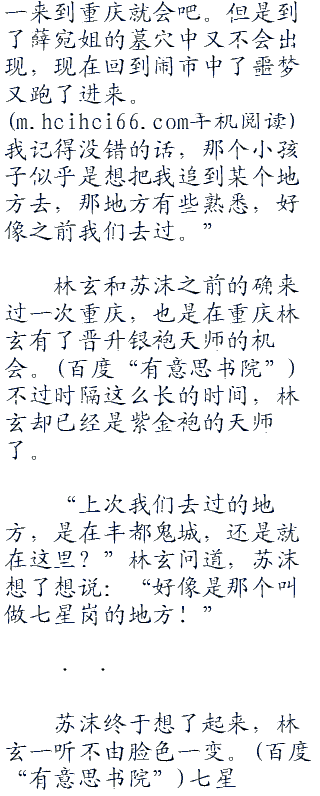 一来到重庆就会吧。但是到
了薛宛姐的墓穴中又不会出
现，现在回到闹市中了噩梦
又跑了进来。
(m.hcihci66.com手机阅读)
我记得没错的话，那个小孩
子似乎是想把我追到某个地
方去，那地方有些熟悉，好
像之前我们去过。”
林玄和苏沫之前的确来
过一次重庆，也是在重庆林
玄有了晋升银袍天师的机
会。(百度“有意思书院”)
不过时隔这么长的时间，林
玄却已经是紫金袍的天师
了。
“上次我们去过的地
方，是在丰都鬼城，还是就
在这里？”林玄问道，苏沫
想了想说：“好像是那个叫
做七星岗的地方！”
. .
苏沫终于想了起来，林
玄一听不由脸色一变。(百度
“有意思书院”)七星